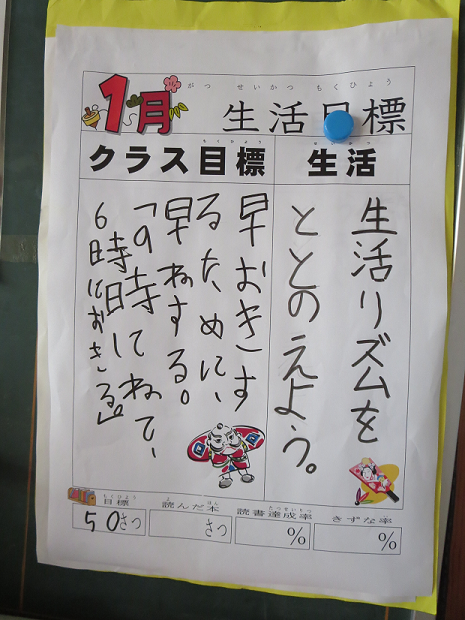 がつ せいかつ もくひょう
1月 生活目標
もくひょう
クラス目標
せいかつ
生活
生活リズムを
ととのえよう。
早おきす
るために、
早ねする。
「9時にねて、
6時におきる」
もくひょう
目標
50さつ
よ ほん
読んだ本
さつ
どくしょたっせいりつ
読書達成率
%
きずな率
%